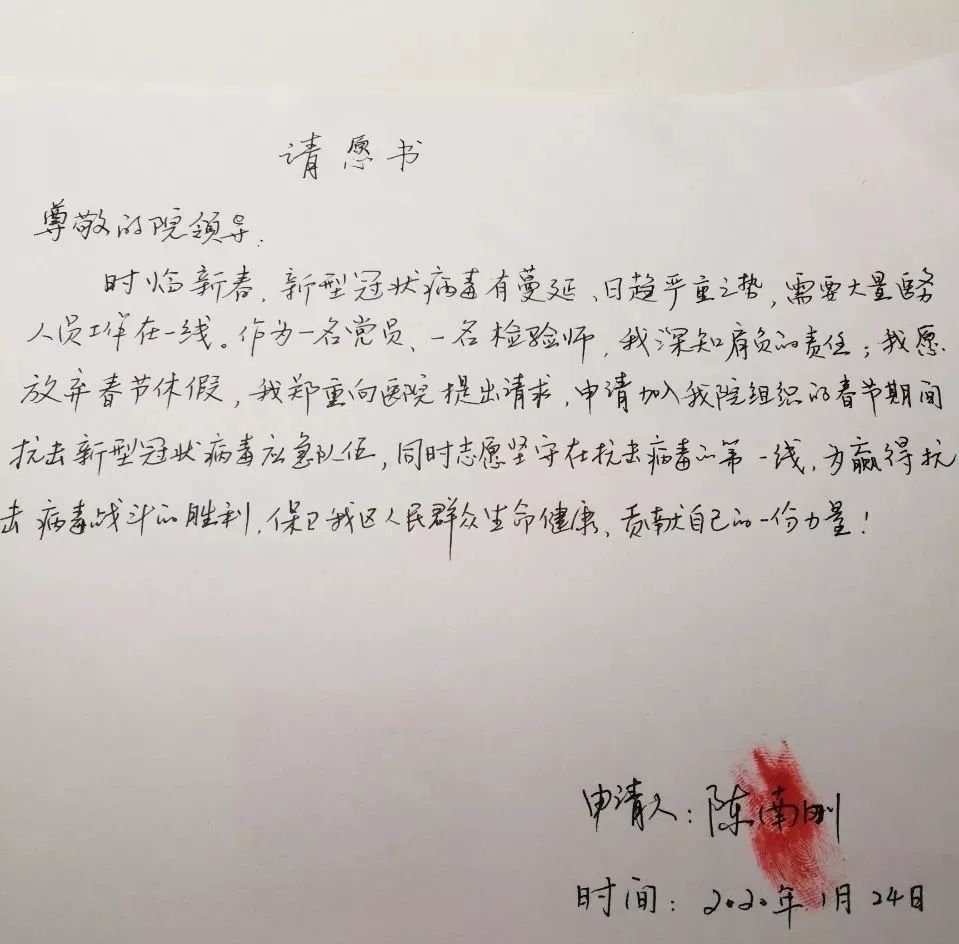 请愿书
尊敬的院领导:
时临新春,新型冠状病毒有蔓延、日趋严重之势,需要大量医务
人员工作在一线。作为一名党员、一名检验师,我深知肩负的责任;我愿
放弃春节休假,我郑重向医院提出请求,申请加入我院组织的春节期间
抗击新型冠状病毒应急队伍,同时志愿坚守在抗击病毒的第一线,为赢得抗
击病毒战斗的胜利,保卫我区人民群众生命健康、贡献自己的一份力量!
申请人:陈南刚
时间:2020年1月24日